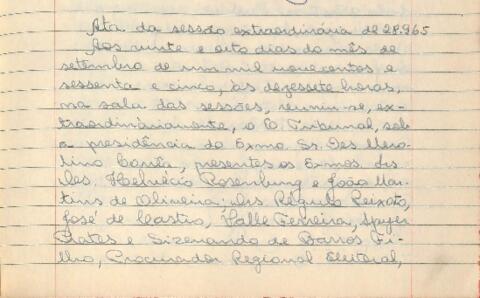 Ata da sessão extraordinária de 28.9.65
Aos vinte e oito dias do mês de
setembro de um mil novecentos e
sessenta e cinco, às dezessete horas,
na sala das sessões, reuniu-se, ex-
traordinàriamente, o E. Tribunal, sob
a presidência do Exmo. Sr. Des.
presentes os Exmos. Srs.
Des. Helvécio Rosenburg e João Mar-
tins de Oliveira; Drs. Régulo Peixoto,
José de Castro, Valle Ferreira,
Prates e Sizenando de Barros Fi-
lho, Procurador Regional Eleitoral,